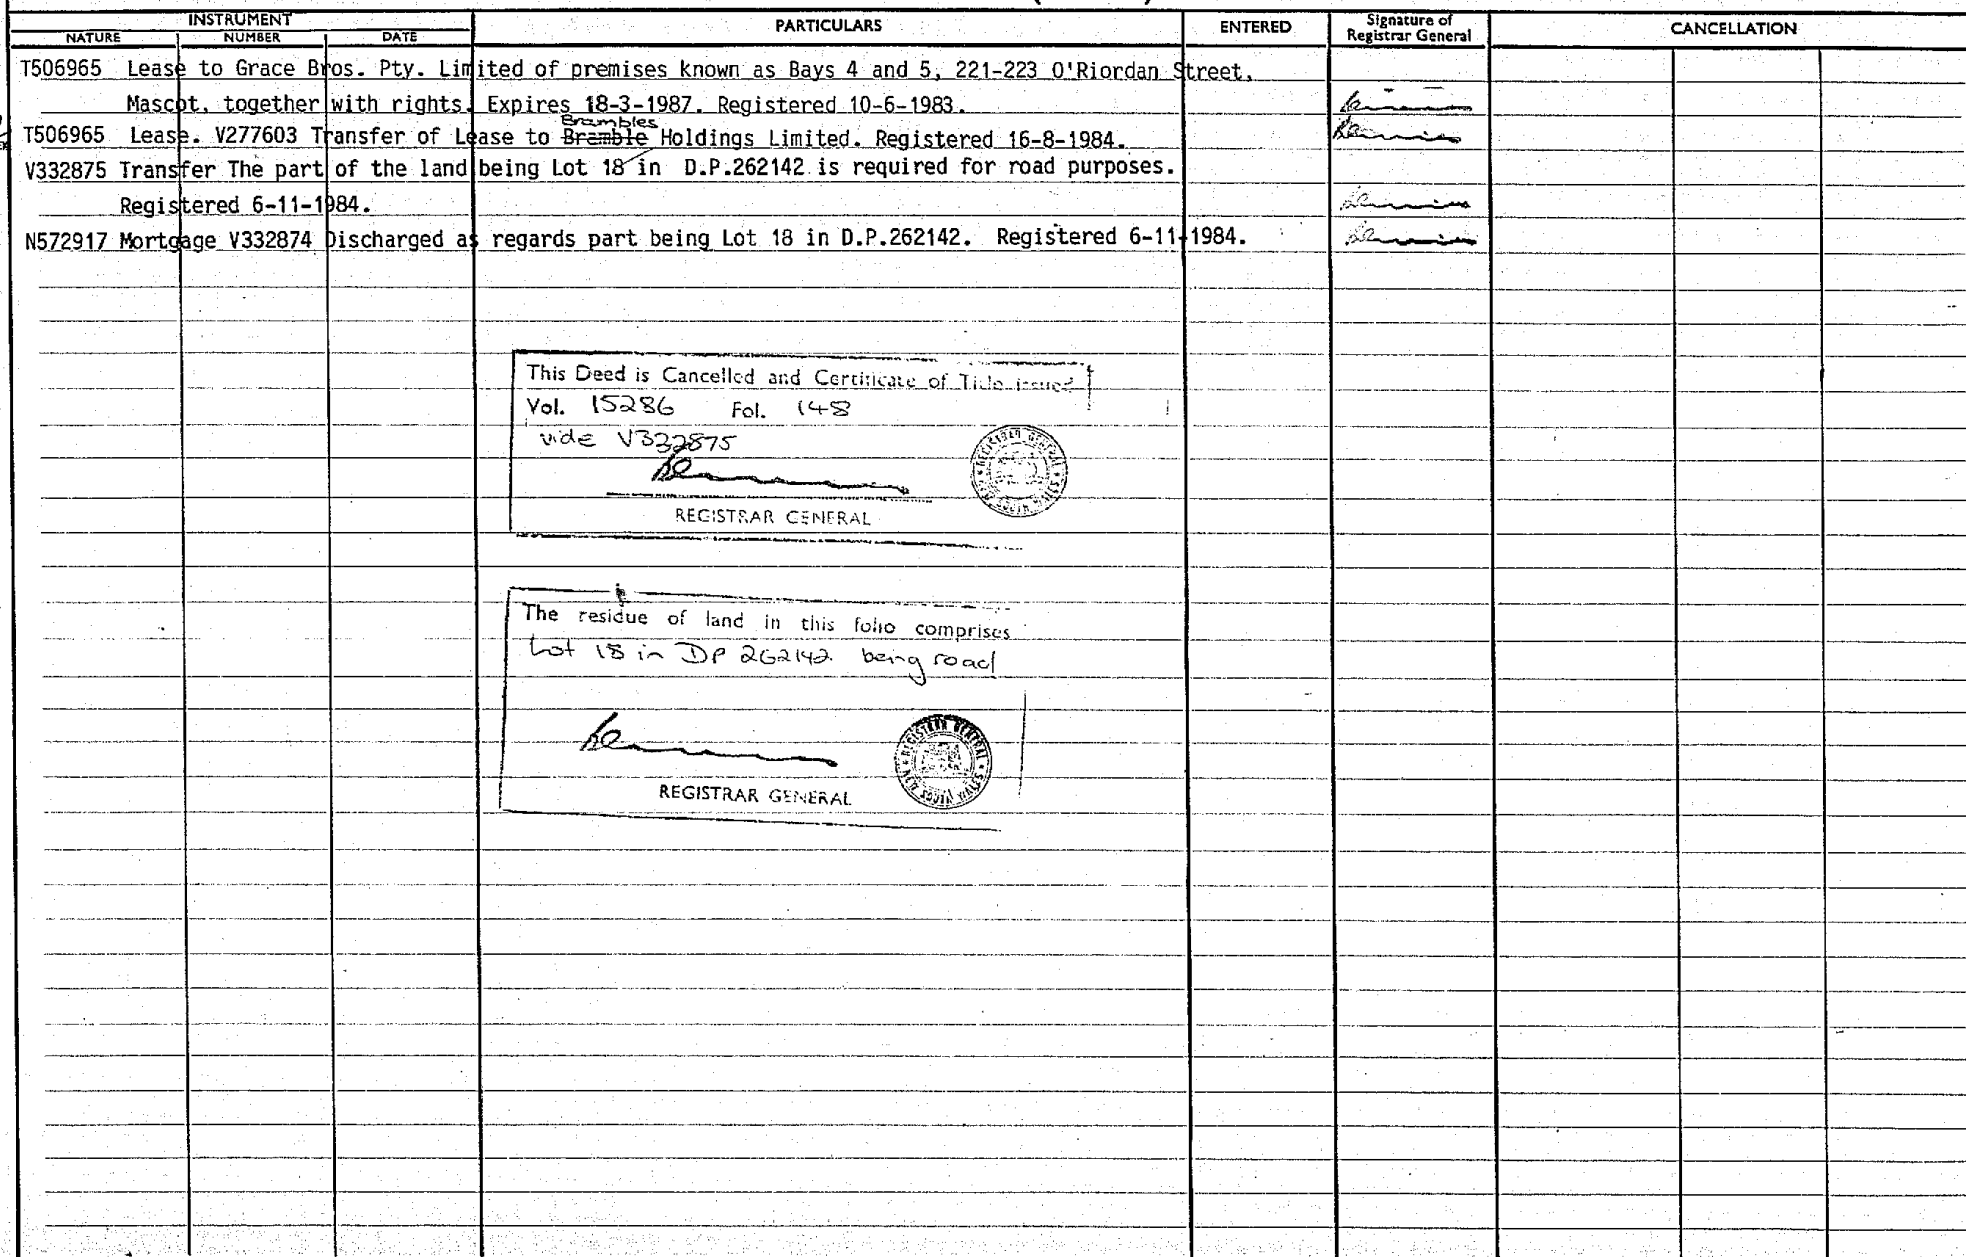 INSTRUMENT
NATURE NUMBER DATE PARTICULARS ENTERED Signature of Registrar General CANCELLATION
T506965 Lease to Grace Bros. Pty. Limited of premises known as Bays 4 and 5, 221-223 O'Riordan Street,
Mascot, together with rights. Expires 18-3-1987. Registered 10-6-1983.
Brambles
T506965 Lease. V277603 Transfer of Lease to Bramble Holdings Limited. Registered 16-8-1984.
V332875 Transfer The part of the land being Lot 18 in D.P.262142 is required for road purposes.
Registered 6-11-1984.
N572917 Mortgage V332874 Discharged as regards part being Lot 18 in D.P.262142. Registered 6-11-1984.
This Deed is Cancelled and Certificate of Title issued
Vol. 15286 Fol. 148
vide V332875
REGISTRAR GENERAL
The residue of land in this folio comprises
Lot 18 in DP 262142 being road
REGISTRAR GENERAL
REGISTRAR GENERAL
NEW SOUTH WALES